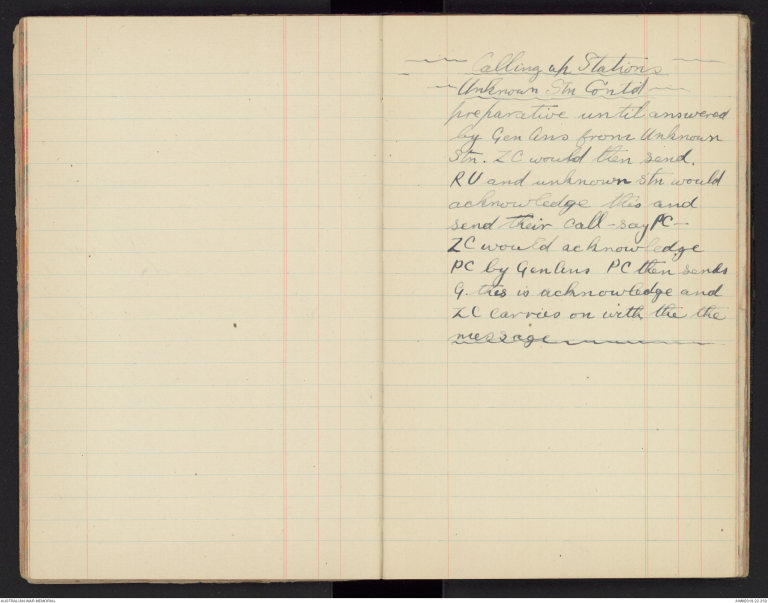 Calling up Stations
Unknown Stn Cont'd
preparative until answered
by Gen Ans from Unknown
Stn. ZC would then send.
RU and unknown stn would
acknowledge this and
send their call - say PC -
ZC would acknowledge
PC by Gen Ans PC then sends
G. this is acknowledge and
ZC carries on with the the
message
AUSTRALIAN WAR MEMORIAL